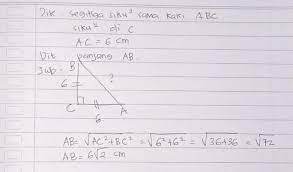 Dik segitiga siku² sama kaki ABC
siku² di C
AC = 6 cm
Dit panjang AB.
Jwb.
B
?
6
C
A
6
AB = √AC²+BC² = √6²+6² = √36+36 = √72
AB = 6√2 cm